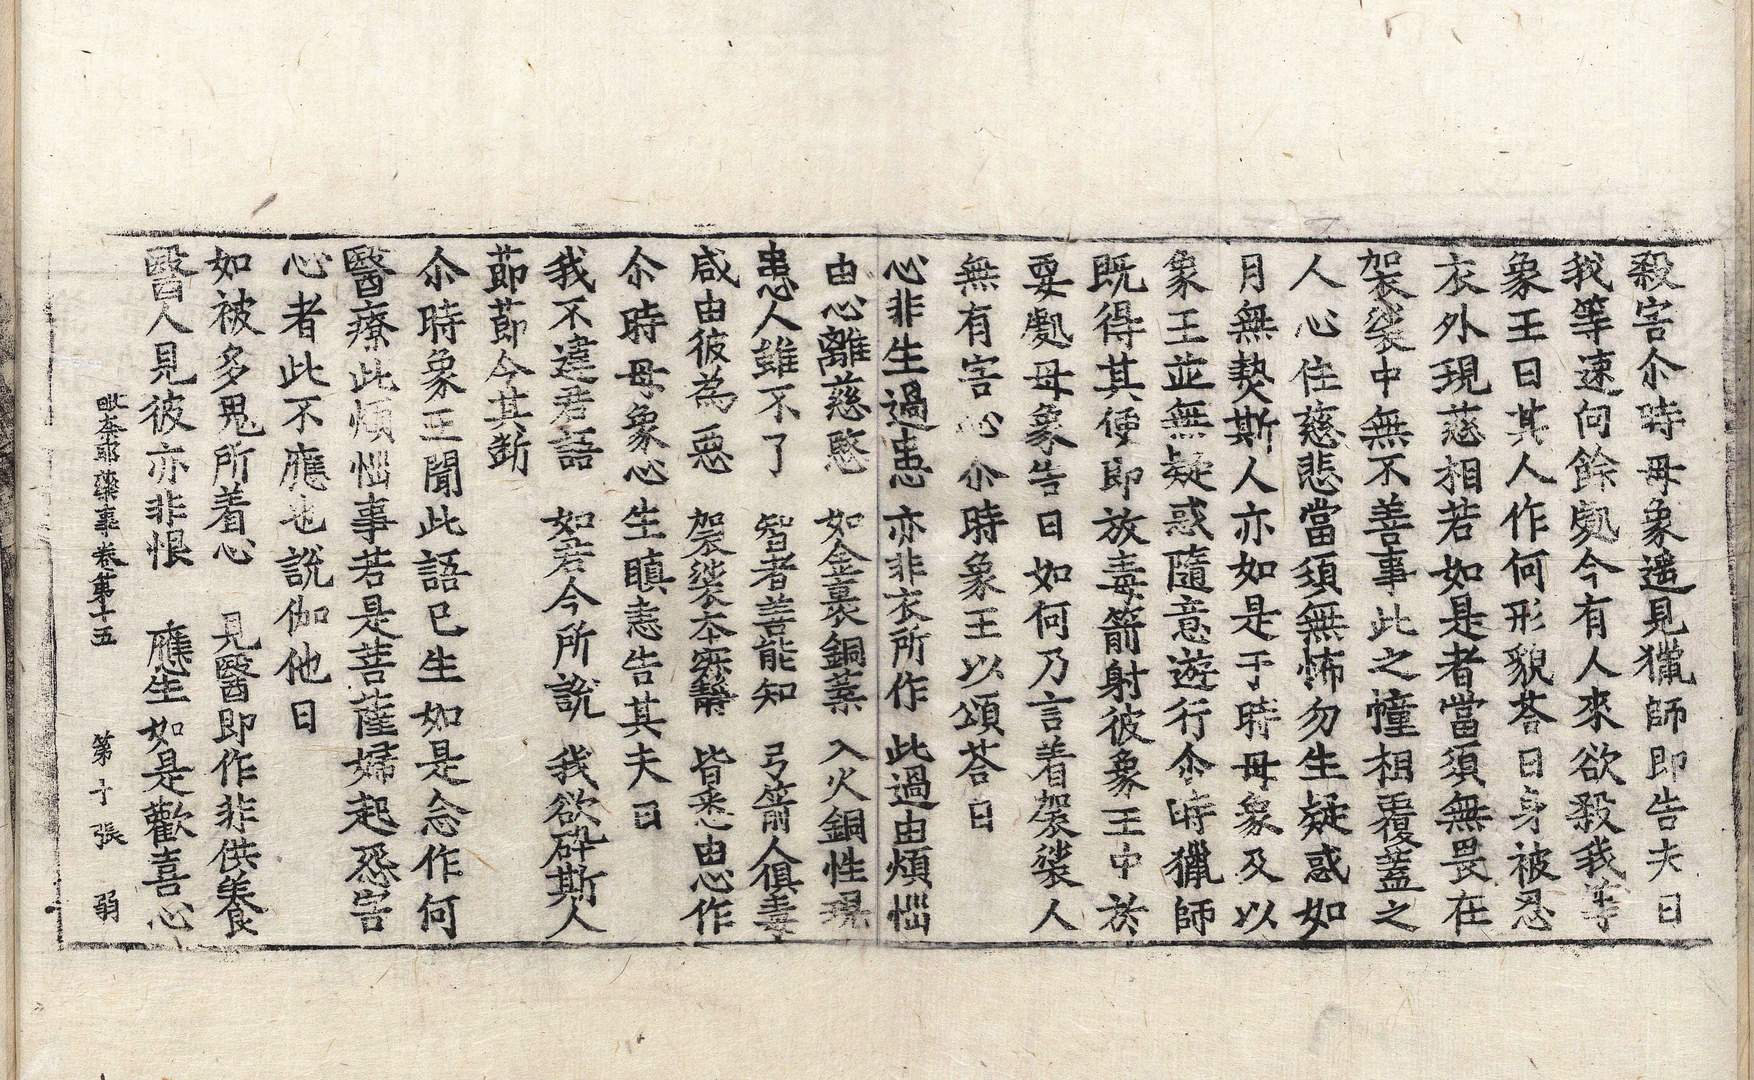 殺害尒時母象遥見獵師即告夫曰
我等速向餘䖏今有人來欲殺我等
象王曰其人作何形貌荅曰身被忍
衣外現慈相若如是者當須無畏在
袈裟中無不善事此之幢相覆蓋之
人心住慈悲當須無怖勿生疑惑如
月無𤍠斯人亦如是于時母象及以
象王並無疑惑隨意遊行尒時獵師
既得其便即放毒箭射彼象王中於
要䖏母象告曰如何乃言着袈裟人
無有害心尒時象王以頌荅曰
心非生過患 亦非衣所作 此過由煩惱
由心離慈愍 如金裹銅葉 入火銅性現
患人雖不了 智者善能知 弓箭人俱毒
咸由彼為惡 袈裟本寂靜 皆悉由心作
尒時母象心生瞋恚告其夫曰
我不違君語 如君今所說 我欲碎斯人
莭莭令其斷
尒時象王聞此語已生如是念作何
醫療此煩惱事若是菩薩婦起惡害
心者此不應也說伽他曰
如被多鬼所着心 見醫即作非供養
醫人見彼亦非恨 應生如是歡喜心
毗奈耶藥事卷第十五 第十張 弱